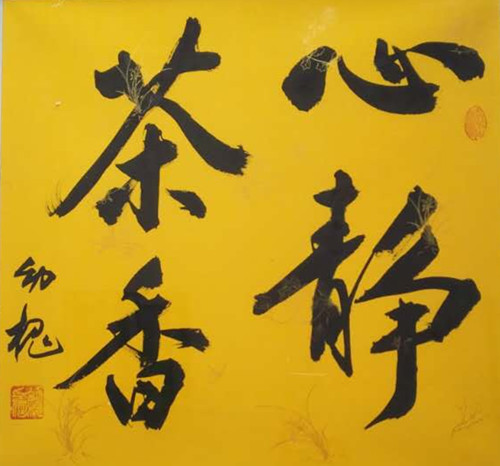 心静
茶香
幼槐